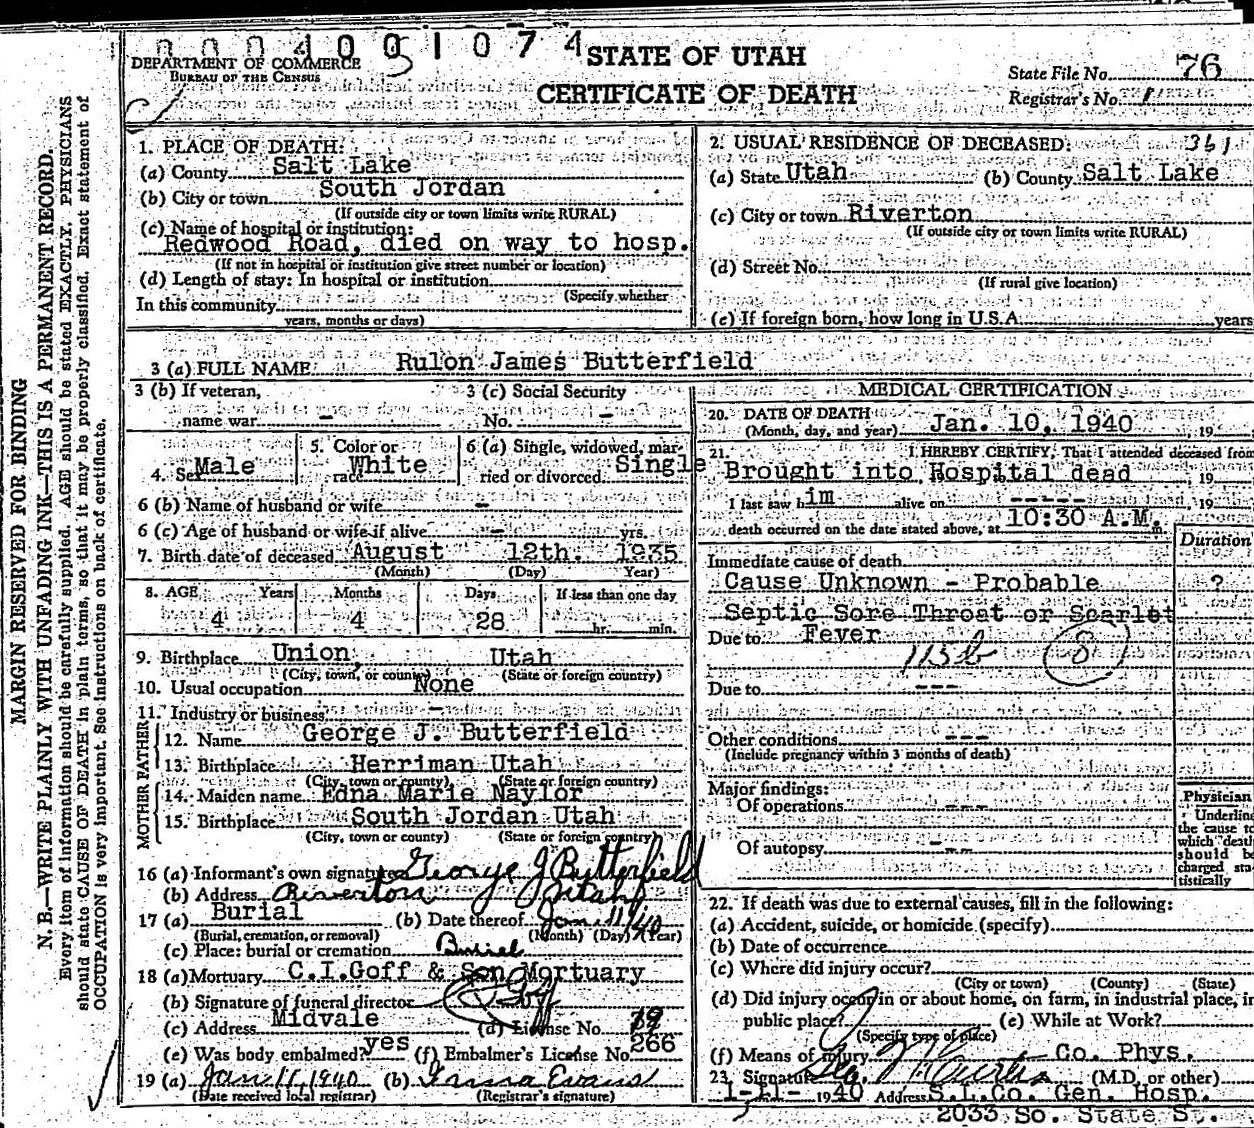 0004001074
STATE OF UTAH
DEPARTMENT OF COMMERCE
BUREAU OF THE CENSUS
CERTIFICATE OF DEATH
State File No. 76
Registrar's No. 1
MARGIN RESERVED FOR BINDING
N. B.—WRITE PLAINLY WITH UNFADING INK—THIS IS A PERMANENT RECORD.
Every item of information should be carefully supplied. AGE should be stated EXACTLY. PHYSICIANS
should state CAUSE OF DEATH in plain terms, so that it may be properly classified. Exact statement of
OCCUPATION is very important. See instructions on back of certificate.
1. PLACE OF DEATH:
(a) County Salt Lake
(b) City or town South Jordan
(If outside city or town limits write RURAL)
(c) Name of hospital or institution:
Redwood Road, died on way to hosp.
(If not in hospital or institution give street number or location)
(d) Length of stay: In hospital or institution
(Specify whether
In this community
years, months or days)
2. USUAL RESIDENCE OF DECEASED: 361
(a) State Utah (b) County Salt Lake
(c) City or town Riverton
(If outside city or town limits write RURAL)
(d) Street No.
(If rural give location)
(e) If foreign born, how long in U.S.A. years
3 (a) FULL NAME Rulon James Butterfield
3 (b) If veteran, 3 (c) Social Security
name war - No. -
4. Sex Male 5. Color or race White 6 (a) Single, widowed, married or divorced Single
6 (b) Name of husband or wife -
6 (c) Age of husband or wife if alive - yrs.
7. Birth date of deceased August 12th. 1935
(Month) (Day) Year)
8. AGE Years Months Days If less than one day
4 4 28 hr. min.
9. Birthplace Union, Utah
(City, town, or county) (State or foreign country)
10. Usual occupation None
11. Industry or business -
FATHER
12. Name George J. Butterfield
13. Birthplace Herriman Utah
(City, town or county) (State or foreign country)
MOTHER
14. Maiden name Edna Marie Naylor
15. Birthplace South Jordan Utah
(City, town or county) (State or foreign country)
16 (a) Informant's own signature George J Butterfield
(b) Address Riverton Utah
17 (a) Burial (b) Date thereof Jan. 11/40
(Burial, cremation, or removal) (Month) (Day) (Year)
(c) Place: burial or cremation Burial
18 (a) Mortuary C.I.Goff & Son Mortuary
(b) Signature of funeral director
(c) Address Midvale (d) License No.
(e) Was body embalmed? yes (f) Embalmer's License No. 266
19 (a) Jan 11, 1940 (b) Emma Evans
(Date received local registrar) (Registrar's signature)
MEDICAL CERTIFICATION
20. DATE OF DEATH
(Month, day, and year) Jan. 10, 1940, 19
21. I HEREBY CERTIFY, That I attended deceased from
Brought into Hospital dead, 19
I last saw him alive on -----, 19
death occurred on the date stated above, at 10:30 A.M. m.
Duration
Immediate cause of death
Cause Unknown - Probable ?
Septic Sore Throat or Scarlet
Due to Fever
115b 8
Due to ---
Other conditions ---
(Include pregnancy within 3 months of death)
Major findings:
Of operations ---
Of autopsy ---
Physician
Underline
the cause to
which death
should be
charged sta-
tistically
22. If death was due to external causes, fill in the following:
(a) Accident, suicide, or homicide (specify)
(b) Date of occurrence
(c) Where did injury occur?
(City or town) (County) (State)
(d) Did injury occur in or about home, on farm, in industrial place, in
public place? (e) While at Work?
(Specify type of place)
(f) Means of injury Co. Phys.
23. Signature (M.D. or other)
1-11- 1940 Address S.L.Co. Gen. Hosp.
2033 So. State St.